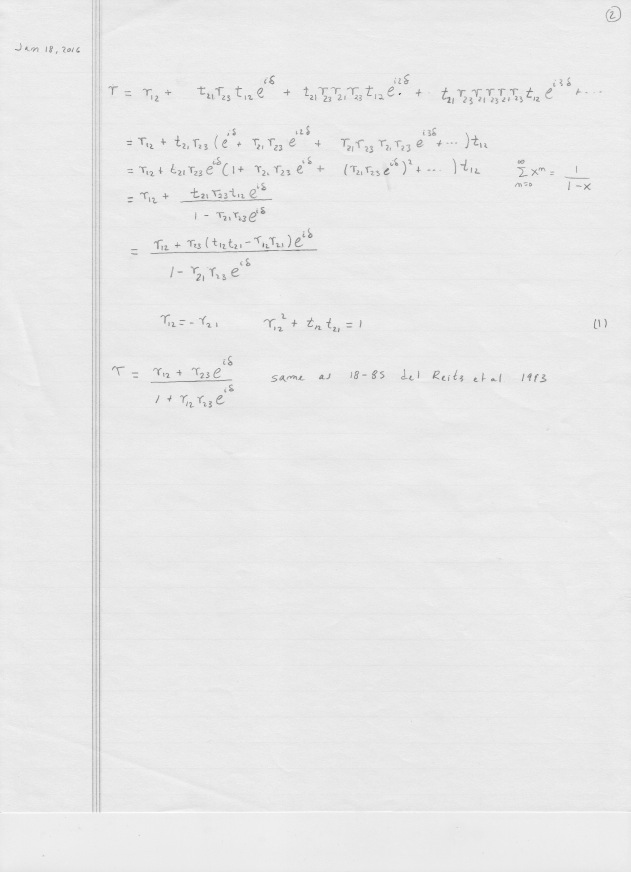 2
Jan 18, 2016
r = r₁₂ + t₂₁r₂₃t₁₂e^{iδ} + t₂₁r₂₃r₂₁r₂₃t₁₂e^{i2δ} + t₂₁r₂₃r₂₁r₂₃r₂₁r₂₃t₁₂e^{i3δ} + ...
= r₁₂ + t₂₁r₂₃(e^{iδ} + r₂₁r₂₃e^{i2δ} + r₂₁r₂₃r₂₁r₂₃e^{i3δ} + ...)t₁₂
= r₁₂ + t₂₁r₂₃e^{iδ}(1 + r₂₁r₂₃e^{iδ} + (r₂₁r₂₃e^{iδ})² + ...)t₁₂ ∑_{n=0}^{∞} xⁿ = 1/(1-x)
= r₁₂ + (t₂₁r₂₃t₁₂e^{iδ})/(1 - r₂₁r₂₃e^{iδ})
= (r₁₂ + r₂₃(t₁₂t₂₁ - r₁₂r₂₁)e^{iδ})/(1 - r₂₁r₂₃e^{iδ})
r₁₂ = -r₂₁ r₁₂² + t₁₂t₂₁ = 1 (1)
r = (r₁₂ + r₂₃e^{iδ})/(1 + r₁₂r₂₃e^{iδ}) same as 18-85 del Reitz et al 1993